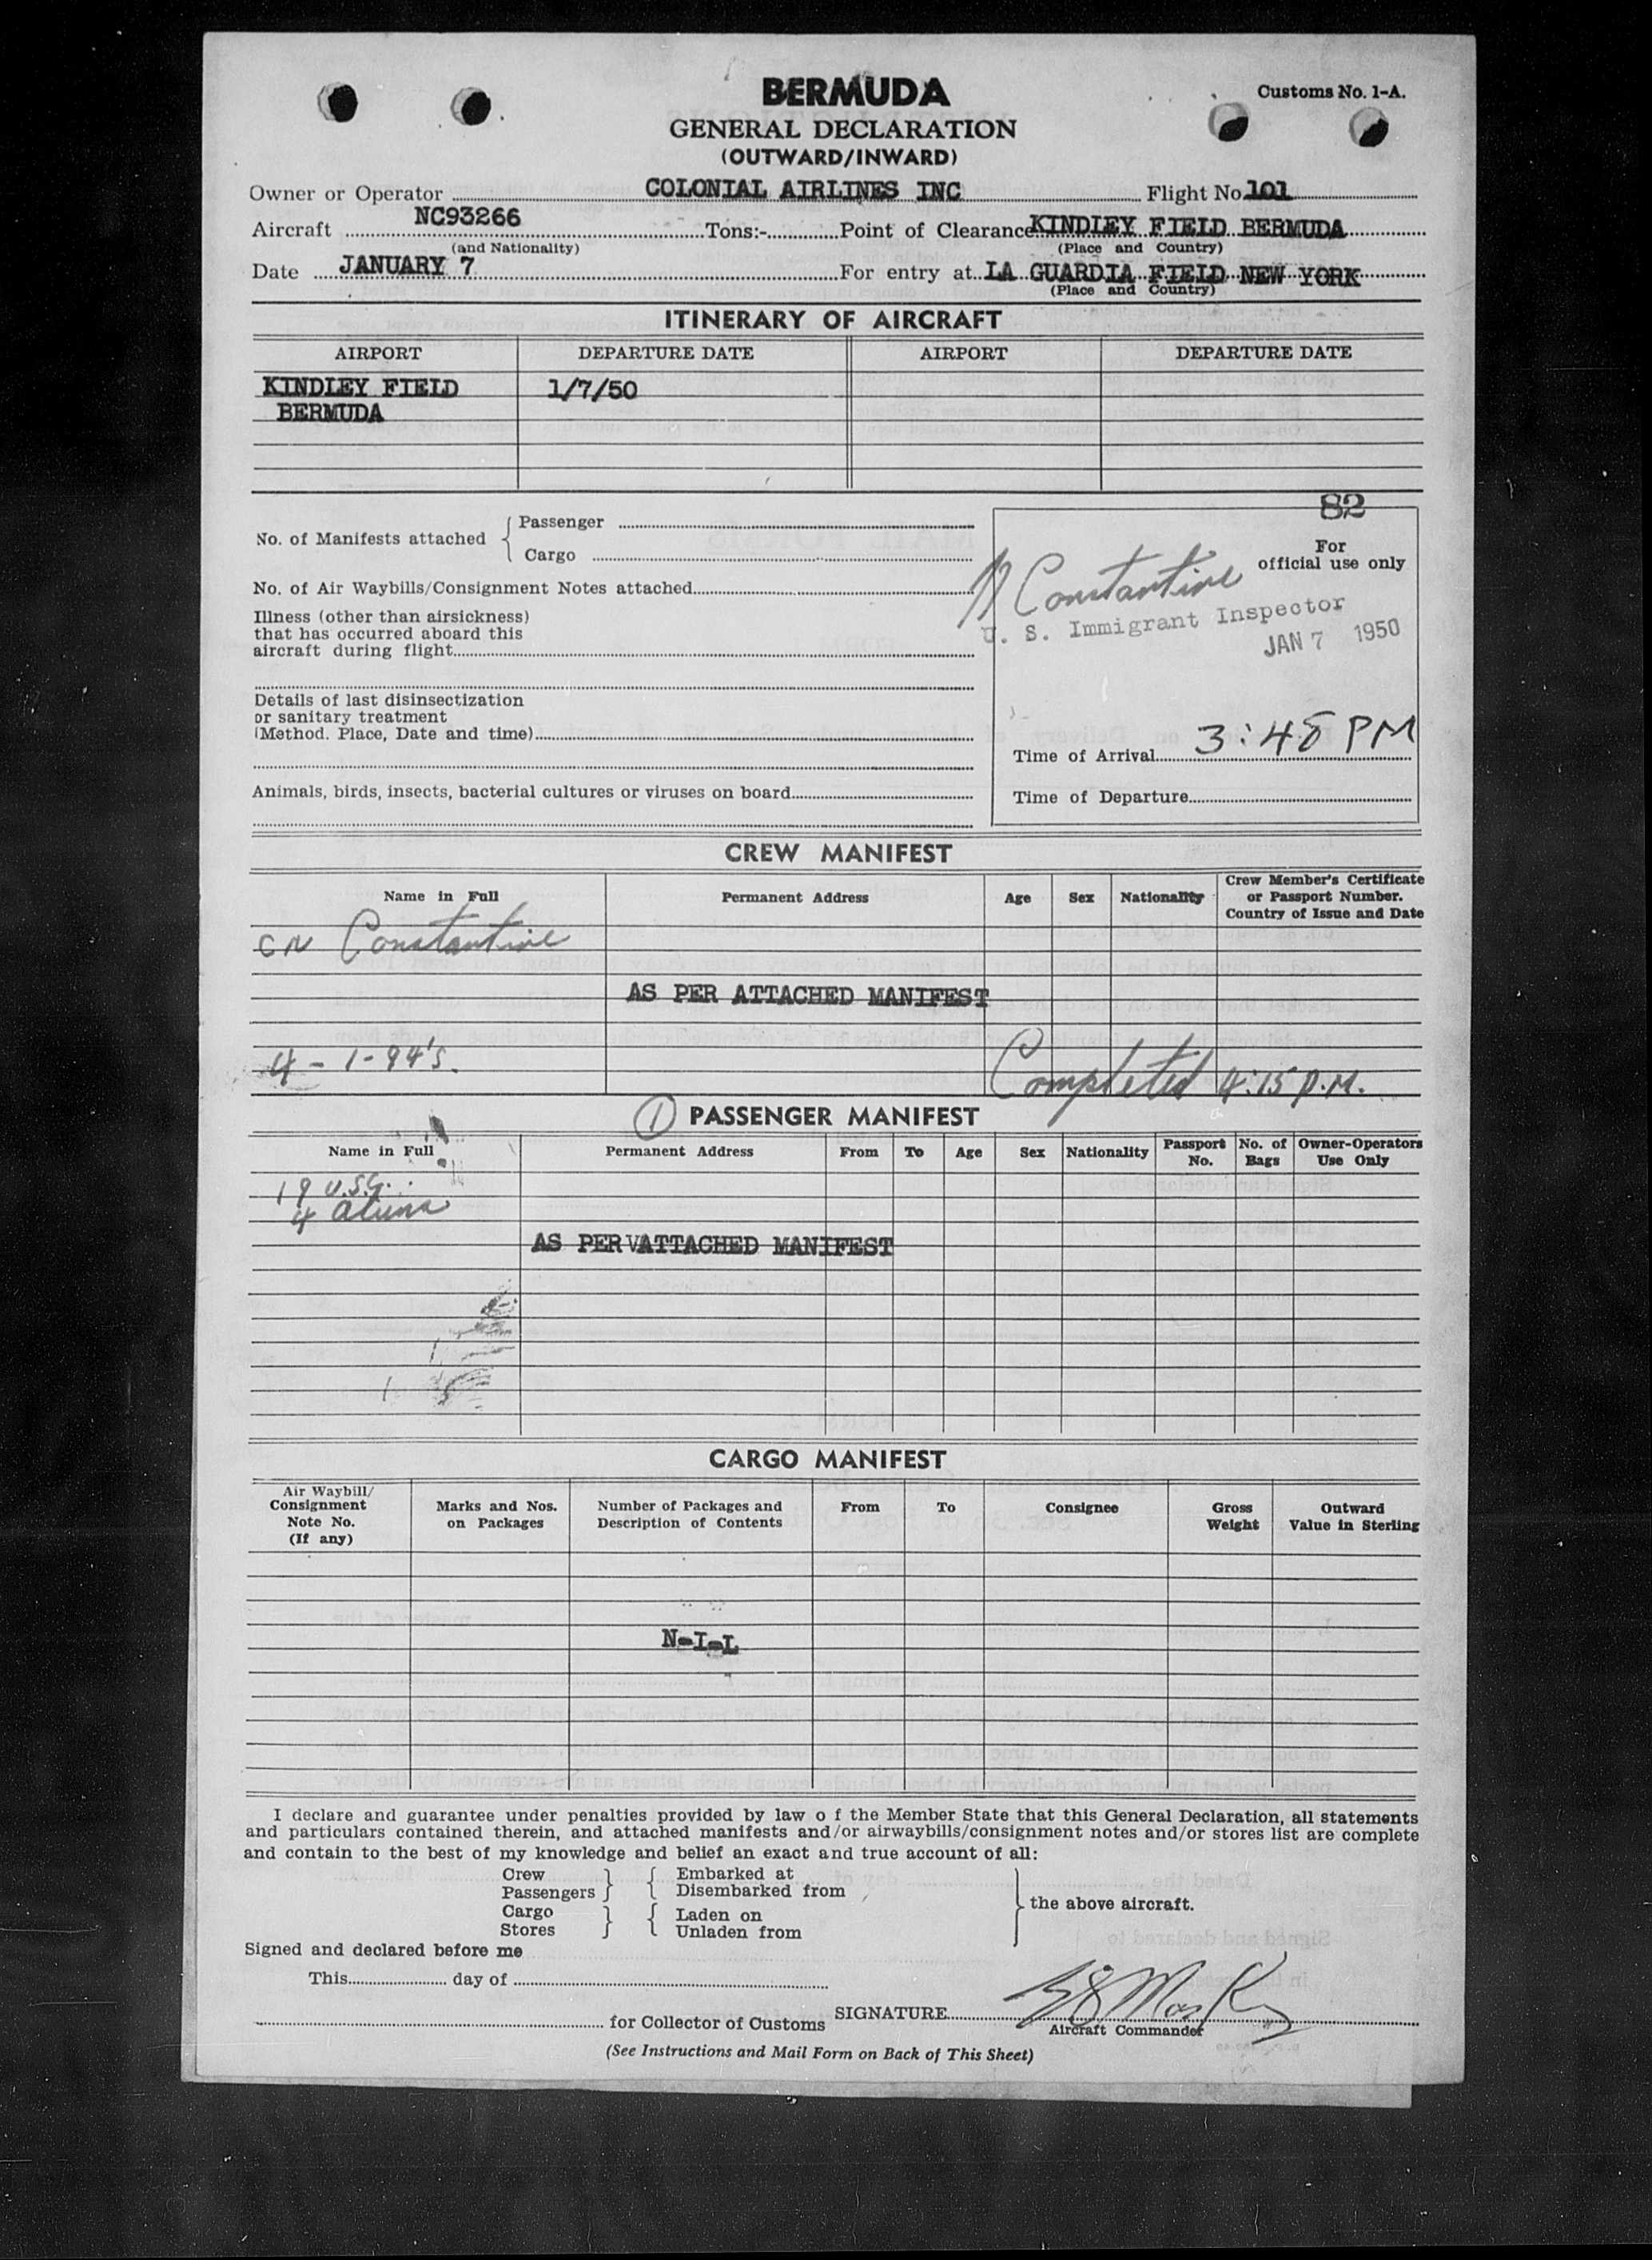 BERMUDA
Customs No. 1-A.
GENERAL DECLARATION
(OUTWARD/INWARD)
Owner or Operator COLONIAL AIRLINES INC Flight No. 101
Aircraft NC93266 Tons:- Point of Clearance KINDLEY FIELD BERMUDA
(and Nationality) (Place and Country)
Date JANUARY 7 For entry at LA GUARDIA FIELD NEW YORK
(Place and Country)
ITINERARY OF AIRCRAFT
AIRPORT DEPARTURE DATE AIRPORT DEPARTURE DATE
KINDLEY FIELD 1/7/50
BERMUDA
82
No. of Manifests attached { Passenger
Cargo
For
official use only
Constantine
U. S. Immigrant Inspector
JAN 7 1950
No. of Air Waybills/Consignment Notes attached
Illness (other than airsickness)
that has occurred aboard this
aircraft during flight
Details of last disinsectization
or sanitary treatment
(Method. Place, Date and time)
Time of Arrival 3:48 PM
Animals, birds, insects, bacterial cultures or viruses on board
Time of Departure
CREW MANIFEST
Name in Full Permanent Address Age Sex Nationality Crew Member's Certificate
or Passport Number.
Country of Issue and Date
Constantine
AS PER ATTACHED MANIFEST
4 - 1-94's.
Completed 4:15 P.M.
(1) PASSENGER MANIFEST
Name in Full Permanent Address From To Age Sex Nationality Passport No. No. of Bags Owner-Operators Use Only
19
4 aliens
AS PERVATTACHED MANIFEST
CARGO MANIFEST
Air Waybill/
Consignment
Note No.
(If any)
Marks and Nos.
on Packages
Number of Packages and
Description of Contents
From To Consignee Gross
Weight
Outward
Value in Sterling
N-I-L
I declare and guarantee under penalties provided by law o f the Member State that this General Declaration, all statements
and particulars contained therein, and attached manifests and/or airwaybills/consignment notes and/or stores list are complete
and contain to the best of my knowledge and belief an exact and true account of all:
Crew } { Embarked at
Passengers } { Disembarked from
} the above aircraft.
Cargo } { Laden on
Stores } { Unladen from
Signed and declared before me
This day of
for Collector of Customs SIGNATURE
Aircraft Commander
(See Instructions and Mail Form on Back of This Sheet)